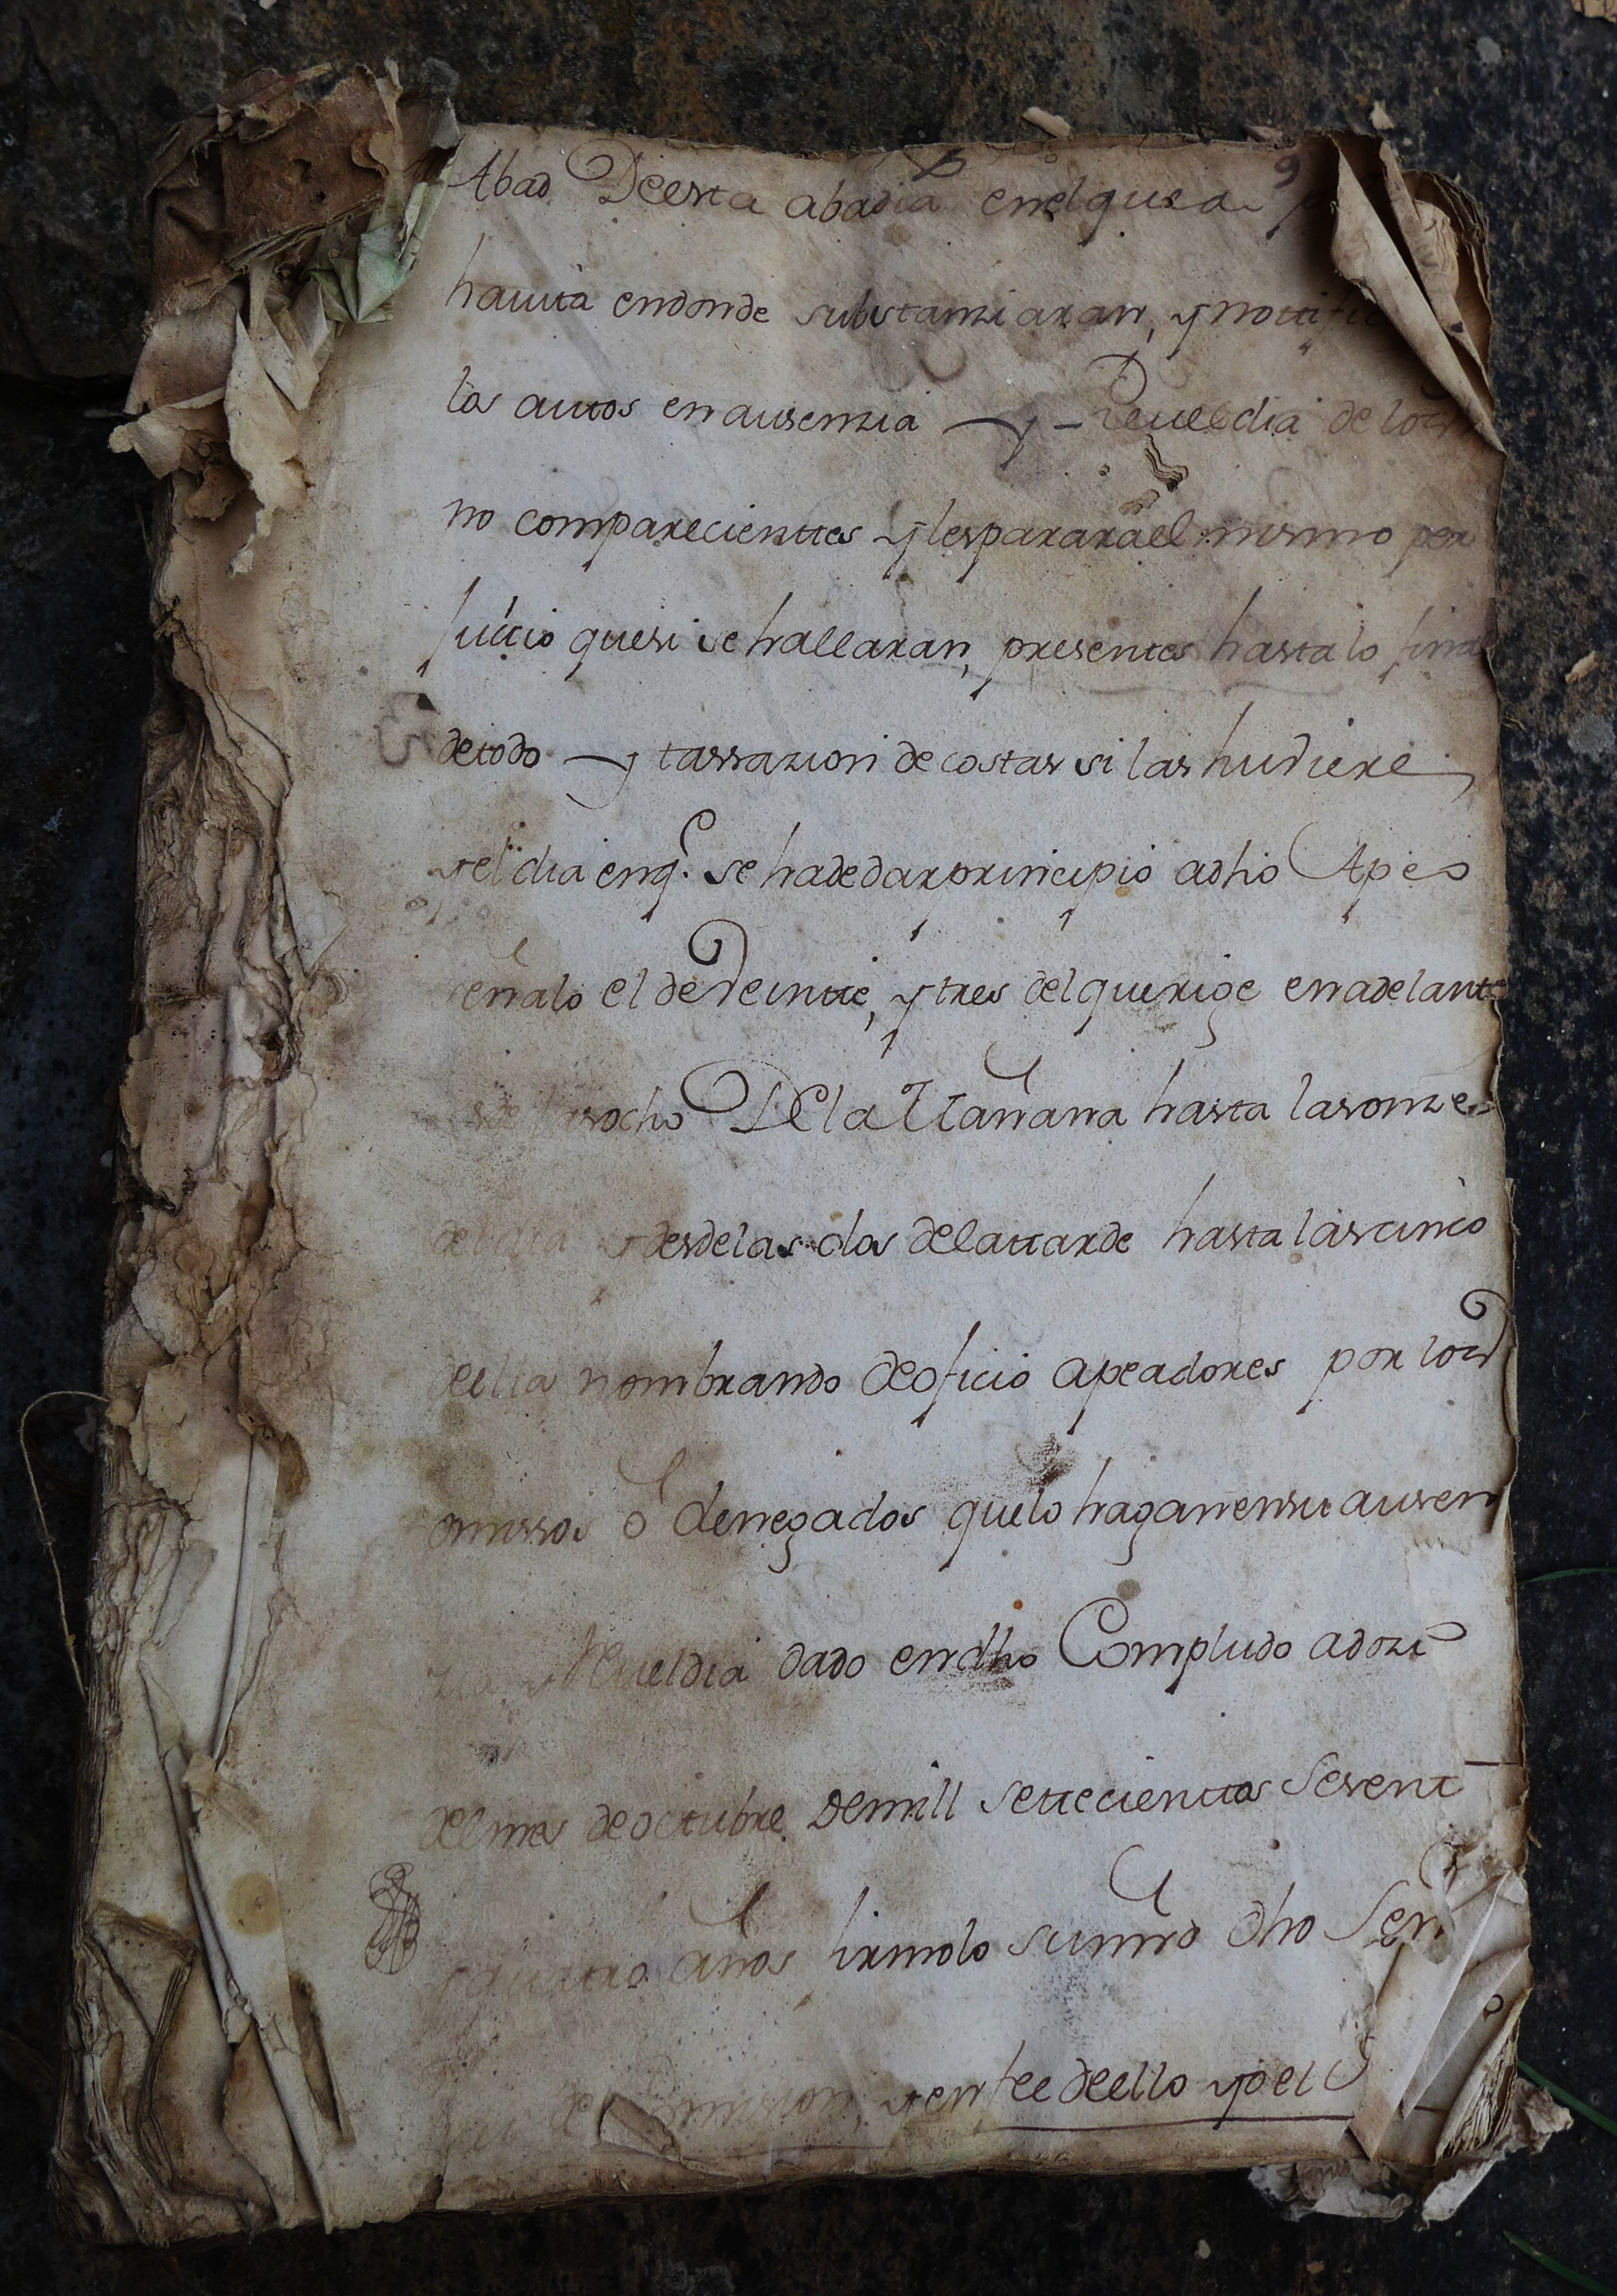 Abad Deesta abadia enelquea
havita endonde substanziaran, y nottific
los auttos en ausenzia y Reveldia de los
no comparecienttes y lespararaèl mismo per
juicio quesi se hallaran, presentes hasta lo final
detodo y tassazion de costas si las huviere,
yel dia enq.e se hadedar principio adho Apeo
señalo el de Veintte, y tres del querige enadelante
sde lasocho Dela Mañana hasta lasonze
de ella y desdelas dos delattarde hasta lascinco
deella nombrando deoficio apeadores por los
omissos ò denegados quelo haganensu ausen
zia y Reveldia dado endho Compludo adoze
delmes deoctubre Demill settecienttos sesent
y quattro años firmolo sumrd dho Señ
de Comission, yenfee deello yoel